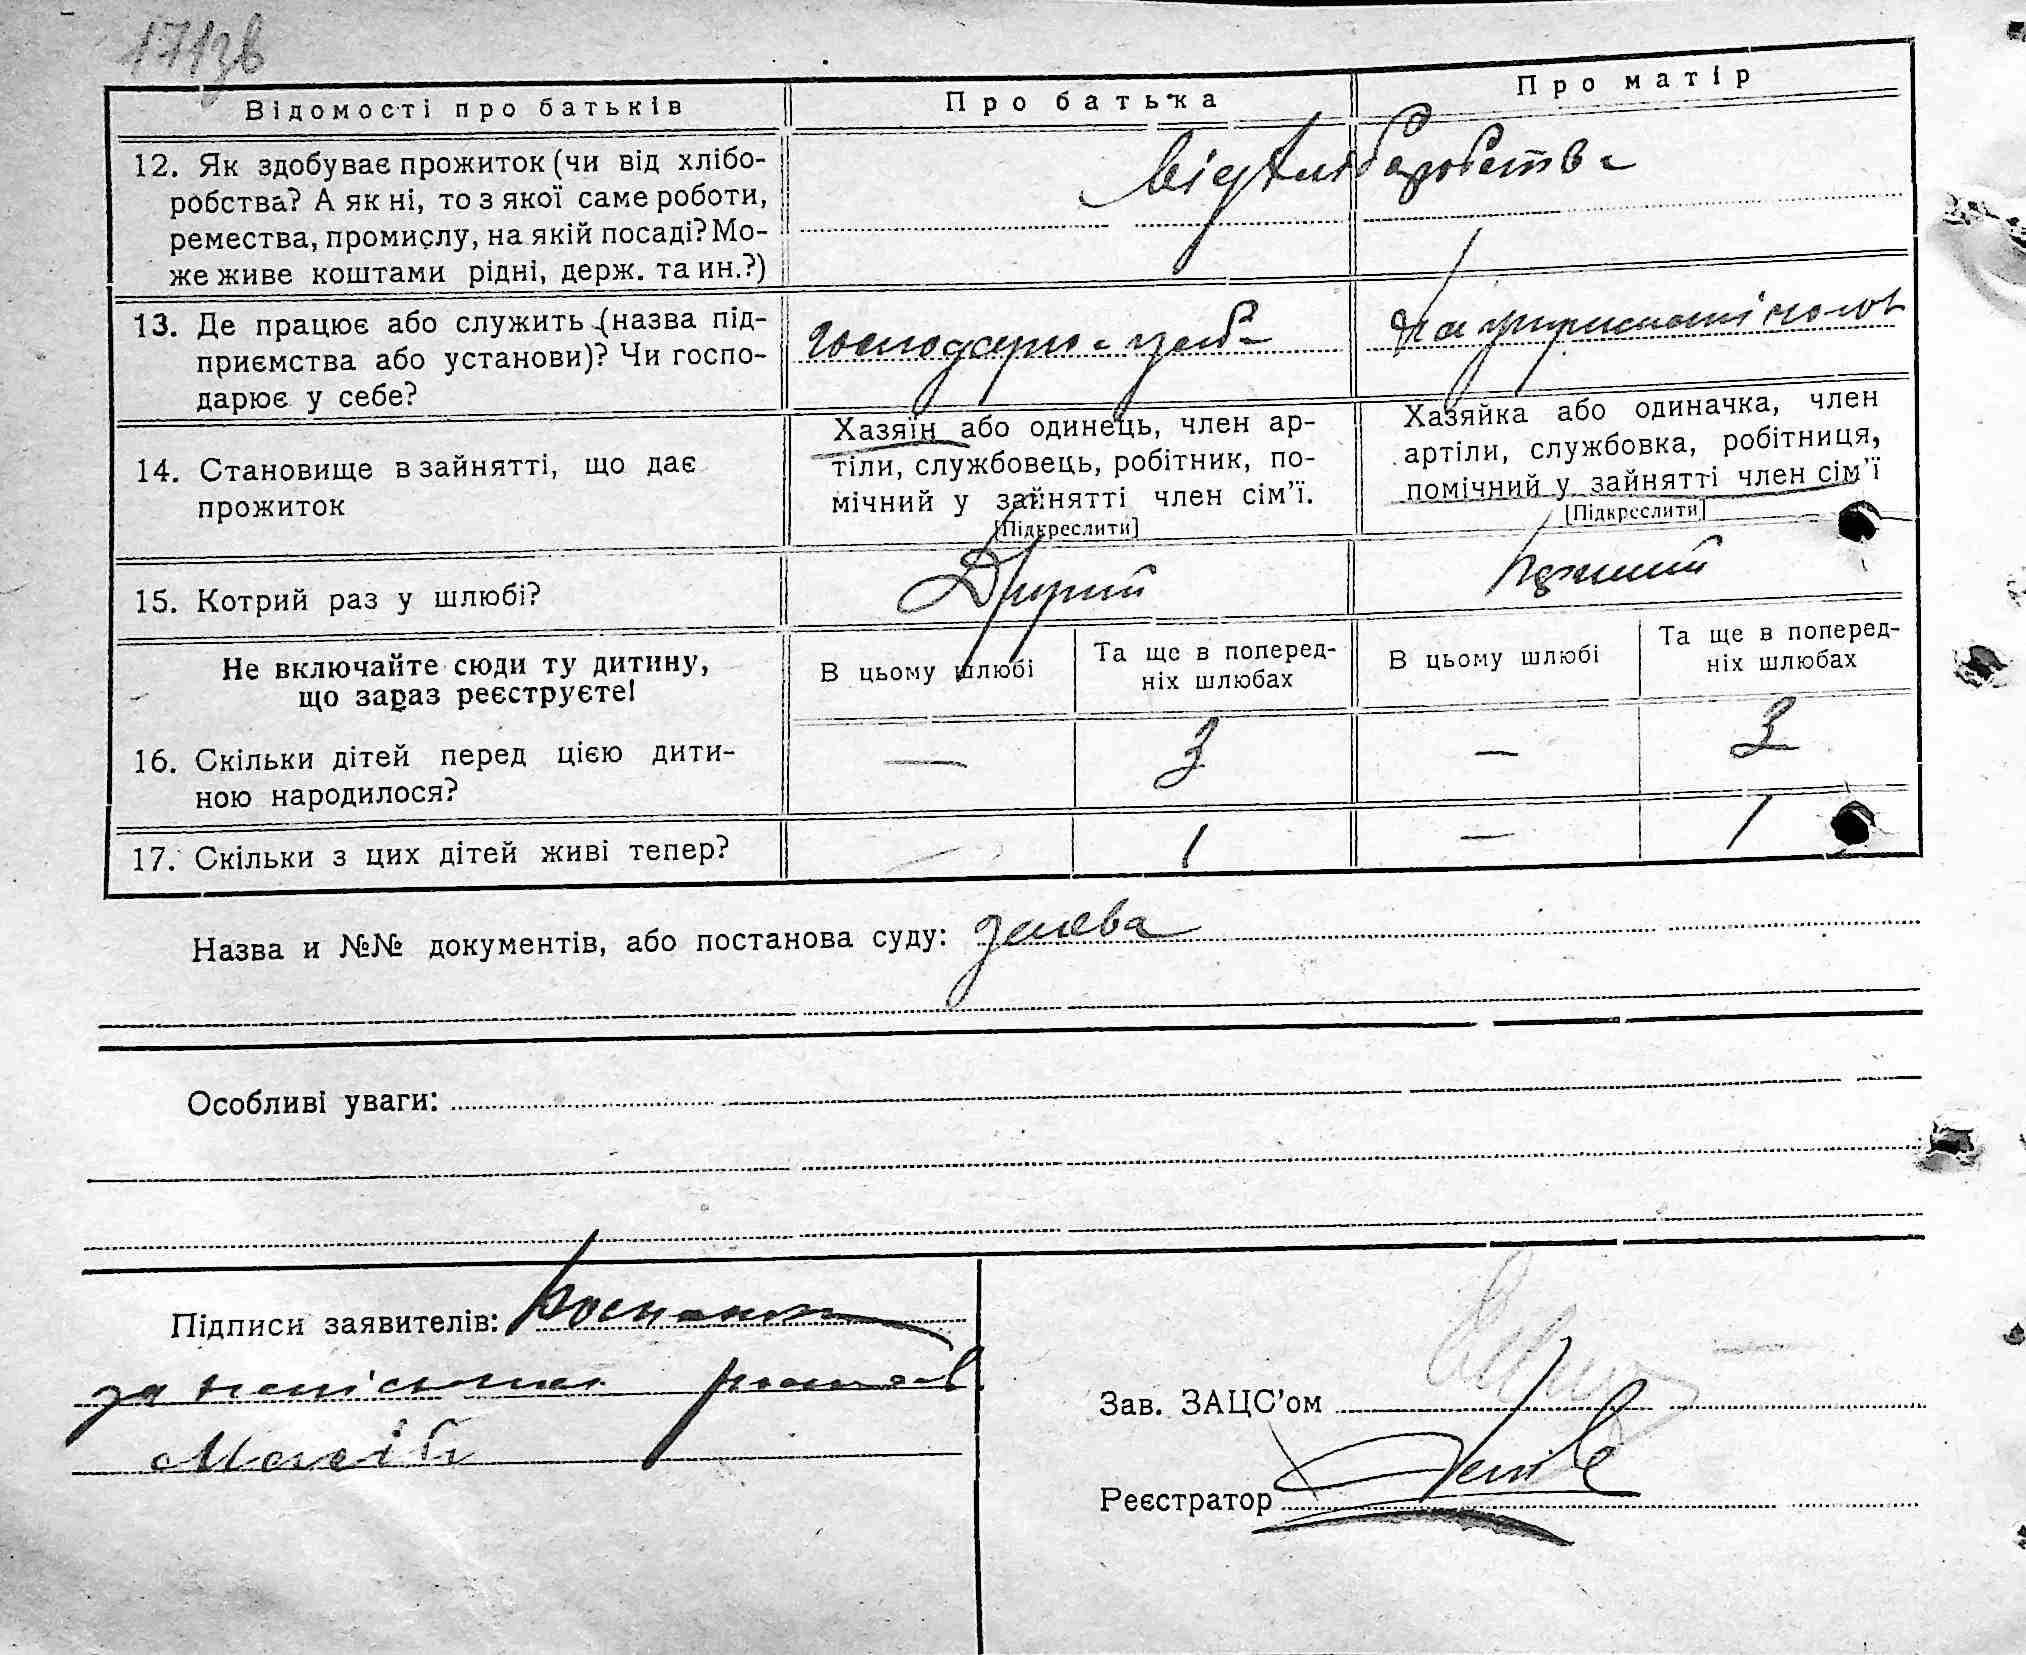 171зв
Відомості про батьків
Про батька
Про матір
12. Як здобуває прожиток (чи від хлібо-
робства? А як ні, то з якої саме роботи,
ремества, промислу, на якій посаді? Мо-
же живе коштами рідні, держ. та ин.?)
від хліборобства
13. Де працює або служить (назва під-
приємства або установи)? Чи госпо-
дарює у себе?
господарює у себе
на утриманні чолов
14. Становище в зайнятті, що дає
прожиток
Хазяїн або одинець, член ар-
тіли, службовець, робітник, по-
мічний у зайнятті член сім'ї.
[Підкреслити]
Хазяйка або одиначка, член
артіли, службовка, робітниця,
помічний у зайнятті член сім'ї
[Підкреслити]
15. Котрий раз у шлюбі?
Другий
Не включайте сюди ту дитину,
що зараз реєструєте!
В цьому шлюбі
Та ще в поперед-
ніх шлюбах
В цьому шлюбі
Та ще в поперед-
ніх шлюбах
16. Скільки дітей перед цією дити-
ною народилося?
— 3 — 3
17. Скільки з цих дітей живі тепер?
— 1 — 1
Назва и №№ документів, або постанова суду: заява
Особливі уваги:
Підписи заявителів:
за неписьмен
Зав. ЗАЦС'ом
Реєстратор